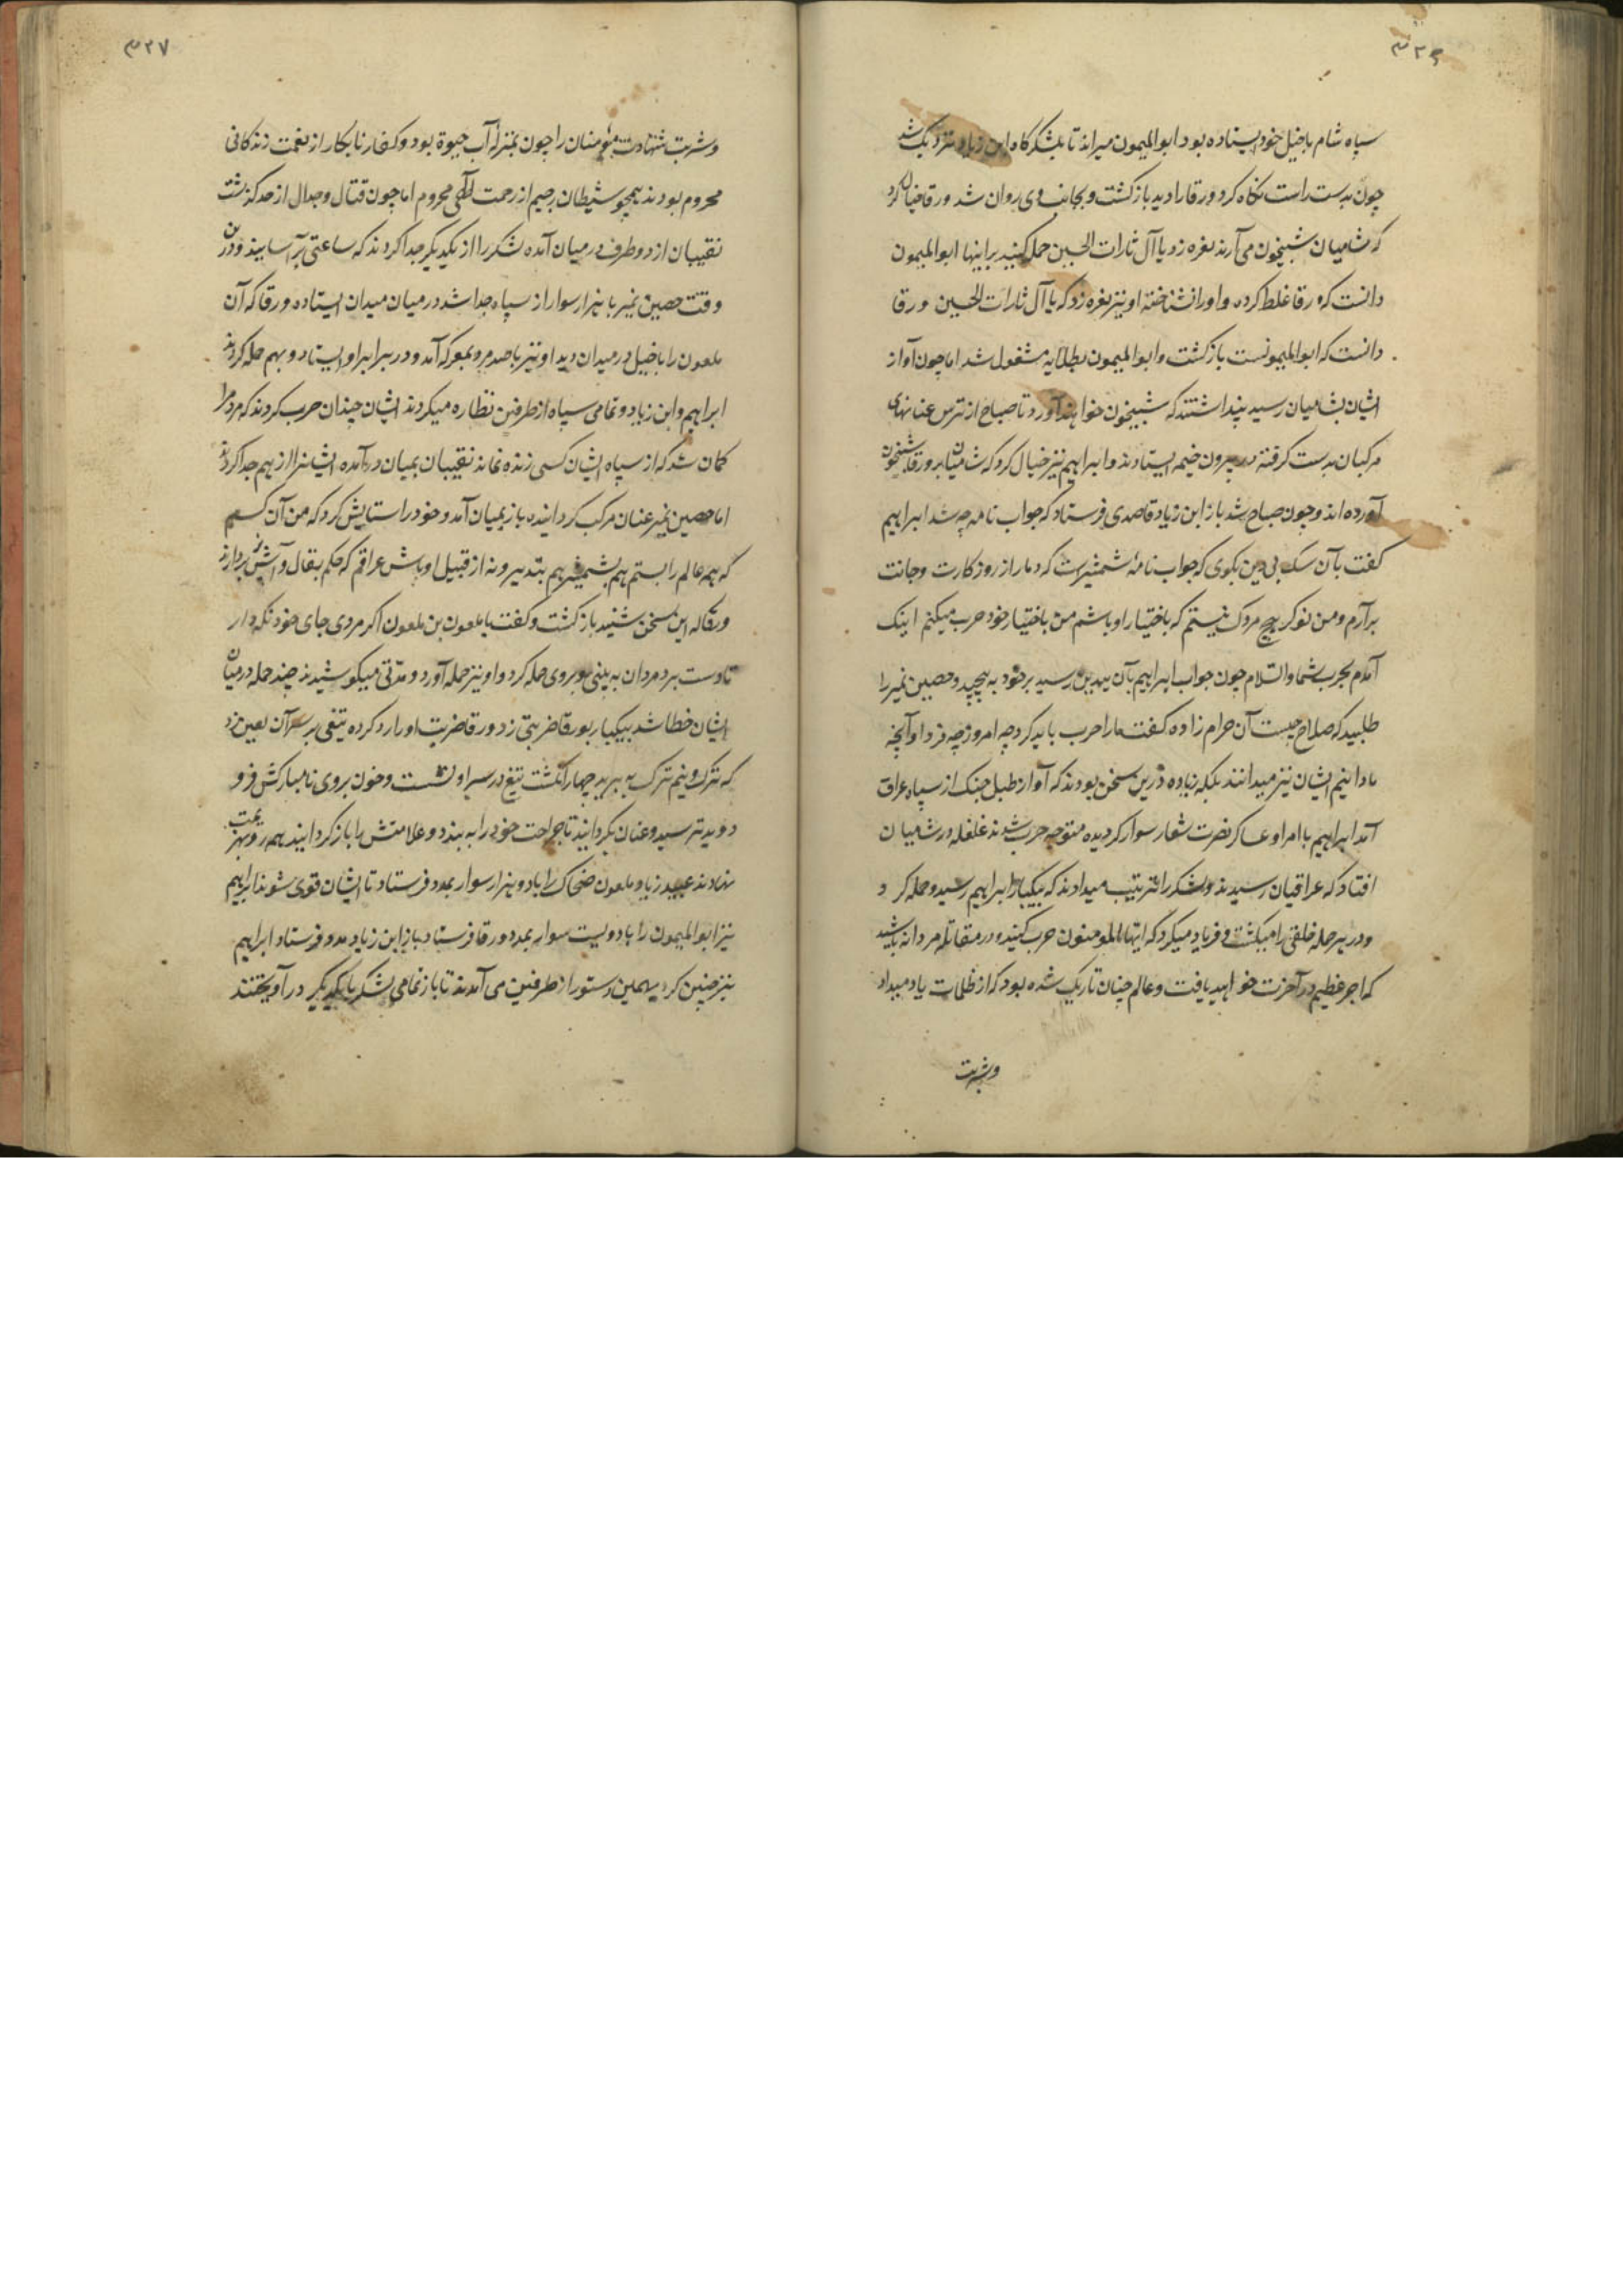 ۳۲۶
سپاه شام باخیل خود ایستاده بود ابوالمیمون میراند تا بلشکرگاه ابن زیاد نزدیک شد
چون بدست راست نکاه کرد ورقا را دید بازکشت و بجانب وی روان شد ورقا خیال کرد
که شامیان شبیخون می آرند نعره زد یا آل ثارات الحسین حمله کنید براینها ابوالمیمون
دانست که ورقا غلط کرده و اورا نشناخته او نیز نعره زد که یا آل ثارات الحسین ورقا
دانست که ابوالمیمونست بازکشت و ابوالمیمون بطلایه مشغول شد اما چون آواز
ایشان بشامیان رسید پنداشتند که شبیخون خواهند آورد تا صباح از ترس عنانهای
مرکبان بدست کرفته در بیرون خیمه ایستادند و ابراهیم نیز خیال کرد که شامیان بر ورقا شبیخون
آورده اند و چون صباح شد باز ابن زیاد قاصدی فرستاد که جواب نامه چه شد ابراهیم
کفت بآن سک بی دین بکوی که جواب نامه شمشیرست که دمار از روزکارت و جانت
برآرم و من نوکر هیچ مردک نیستم که باختیار او باشم من باختیار خود حرب میکنم اینک
آمدم بحرب شما والسلام چون جواب ابراهیم بآن بیدین رسید برخود به پیچید و حصین نمیر را
طلبید که صلاح چیست آن حرام زاده کفت مارا حرب باید کرد چه امروز چه فردا و آنچه
ما دانیم ایشان نیز میدانند بلکه زیاده درین سخن بودند که آواز طبل جنک از سپاه عراق
آمد ابراهیم با امرا و عساکر نصرت شعار سوار کردیده متوجه حرب شدند غلغله در شامیان
افتاد که عراقیان رسیدند و لشکر را ترتیب میدادند که بیکبار ابراهیم رسید و حمله کرد
و در هر حمله خلقی را میکشت و فریاد میکرد که ایها المومنون حرب کنید و در مقاتله مردانه باشید
که اجر عظیم در آخرت خواهید یافت و عالم چنان تاریک شده بود که از ظلمات یاد میداد
وشربت
۳۲۷
وشربت شهادت مؤمنان را چون بمنزله آب حیوة بود و کفار نابکار از نعمت زندکانی
محروم بودند همچو شیطان رجیم از رحمت الهی محروم اما چون قتال و جدال از حد کذشت
نقیبان از دو طرف در میان آمده لشکر را از یکدیکر جدا کردند که ساعتی برآسایند و درین
وقت حصین نمیر با هزار سوار از سپاه جدا شد در میان میدان ایستاده ورقا که آن
ملعون را باخیل در میدان دید او نیز باصد مرد بمعرکه آمد و در برابر او ایستاد و بهم حمله کردند
ابراهیم و ابن زیاد و تمامی سپاه از طرفین نظاره میکردند ایشان چندان حرب کردند که مردم را
کمان شد که از سپاه ایشان کسی زنده نماند نقیبان بمیان درآمده ایشانرا از هم جدا کردند
اما حصین نمیر عنان مرکب کردانیده باز بمیان آمد و خود را ستایش کرد که من آن کسم
که همه عالم را بستم هم بشمشیر هم بتدبیر و نه از قبیل اوباش عراقم که حکم بقال و آش پز دارند
ورقا که این سخن شنید بازکشت و کفت یا ملعون بن ملعون اکر مردی جای خود نکه دار
تا دست برد مردان به بینی و بروی حمله کرد و او نیز حمله آورد و مدتی میکوشیدند چند حمله در میان
ایشان خطا شد بیکبار بورقا ضربتی زد ورقا ضربت او را رد کرده تیغی بر سر آن لعین زد
که ترک و نیم ترک به برید چهار انکشت تیغ در سر او نشست و خون بروی نامبارکش فرو
دوید ترسید و عنان بکردانید تا جراحت خود را به بندد و علامتش را بازکردانیدند همه رو بهزیمت
نهادند عبید زیاد ملعون ضحاک را با دو هزار سوار بمدد فرستاد تا ایشان قوی شوند ابراهیم
نیز ابوالمیمون را با دویست سوار بمدد ورقا فرستاد باز ابن زیاد مدد فرستاد ابراهیم
نیز چنین کرد بهمین دستور از طرفین می آمدند تا باز تمامی لشکر بایکدیکر درآویختند